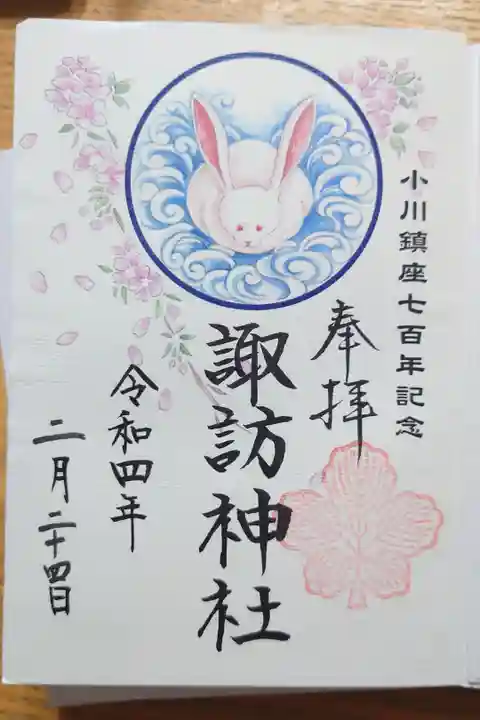 小川鎮座七百年記念
奉拝
諏訪神社
令和四年
二月二十四日